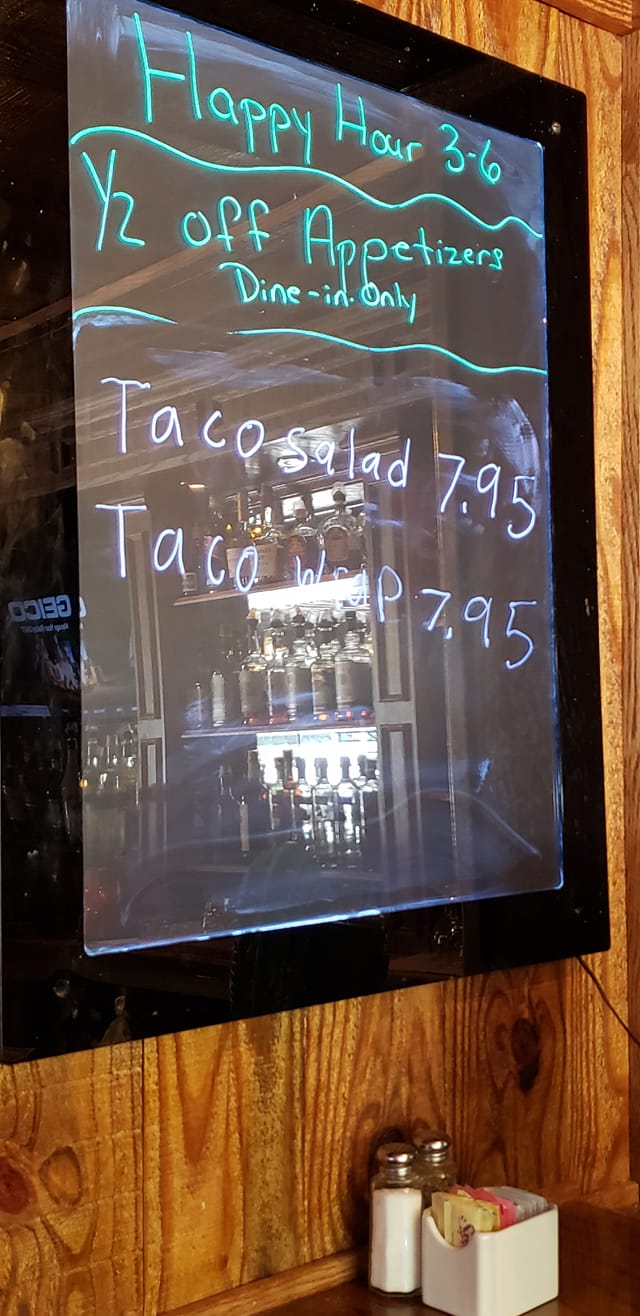 Happy Hour 3-6
1/2 off Appetizers
Dine-in Only
Taco Salad 7.95
Taco Wrap 7.95
GEICO